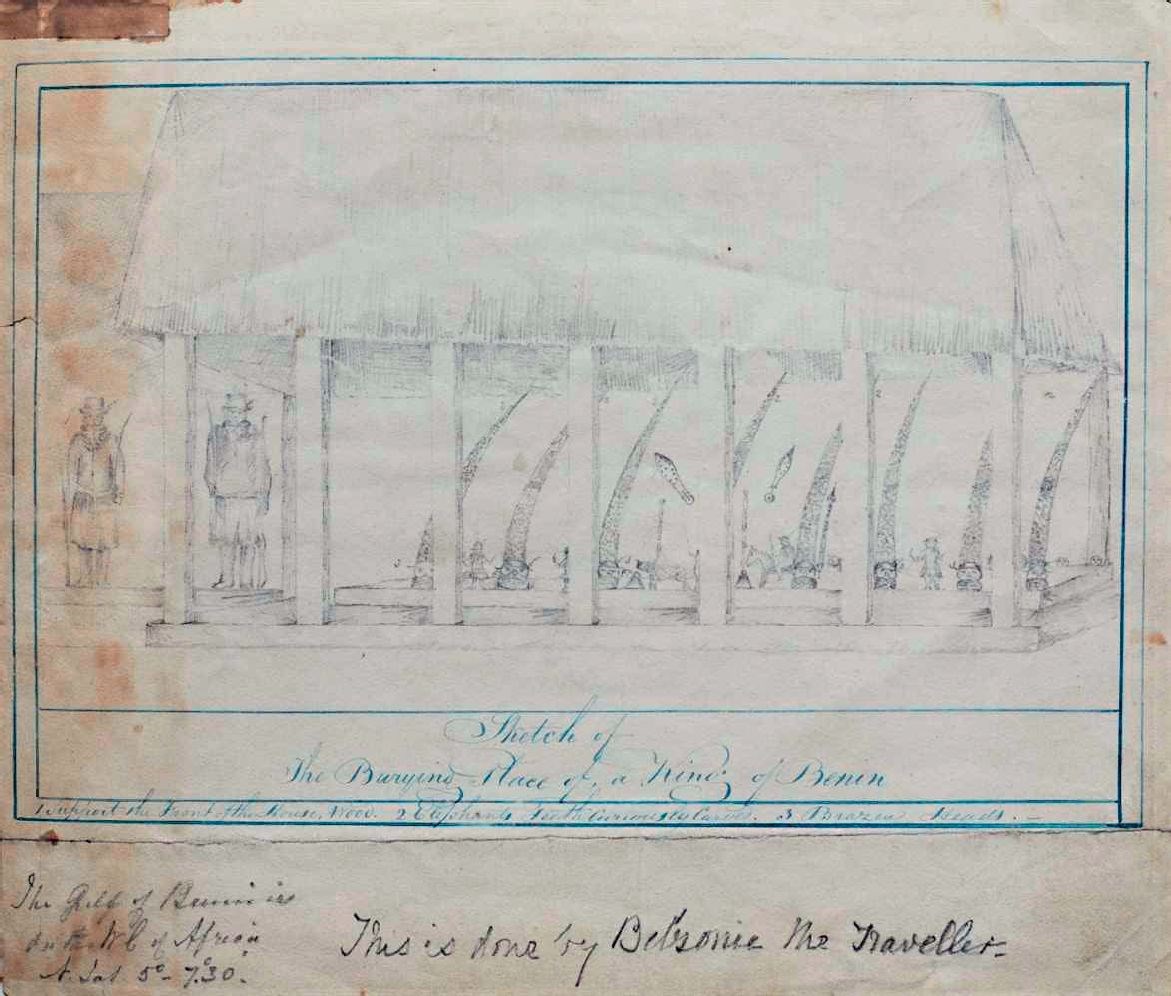 Sketch of
The Burying Place of a King of Benin
1 Support the Front of the House, Wood. 2 Elephants Teeth Curiously Carved. 3 Brazen Heads. -
The Gulf of Benin is
on the WC of Africa
N. Lat. 5° - 7.30.
This is done by Belsonie the Traveller -